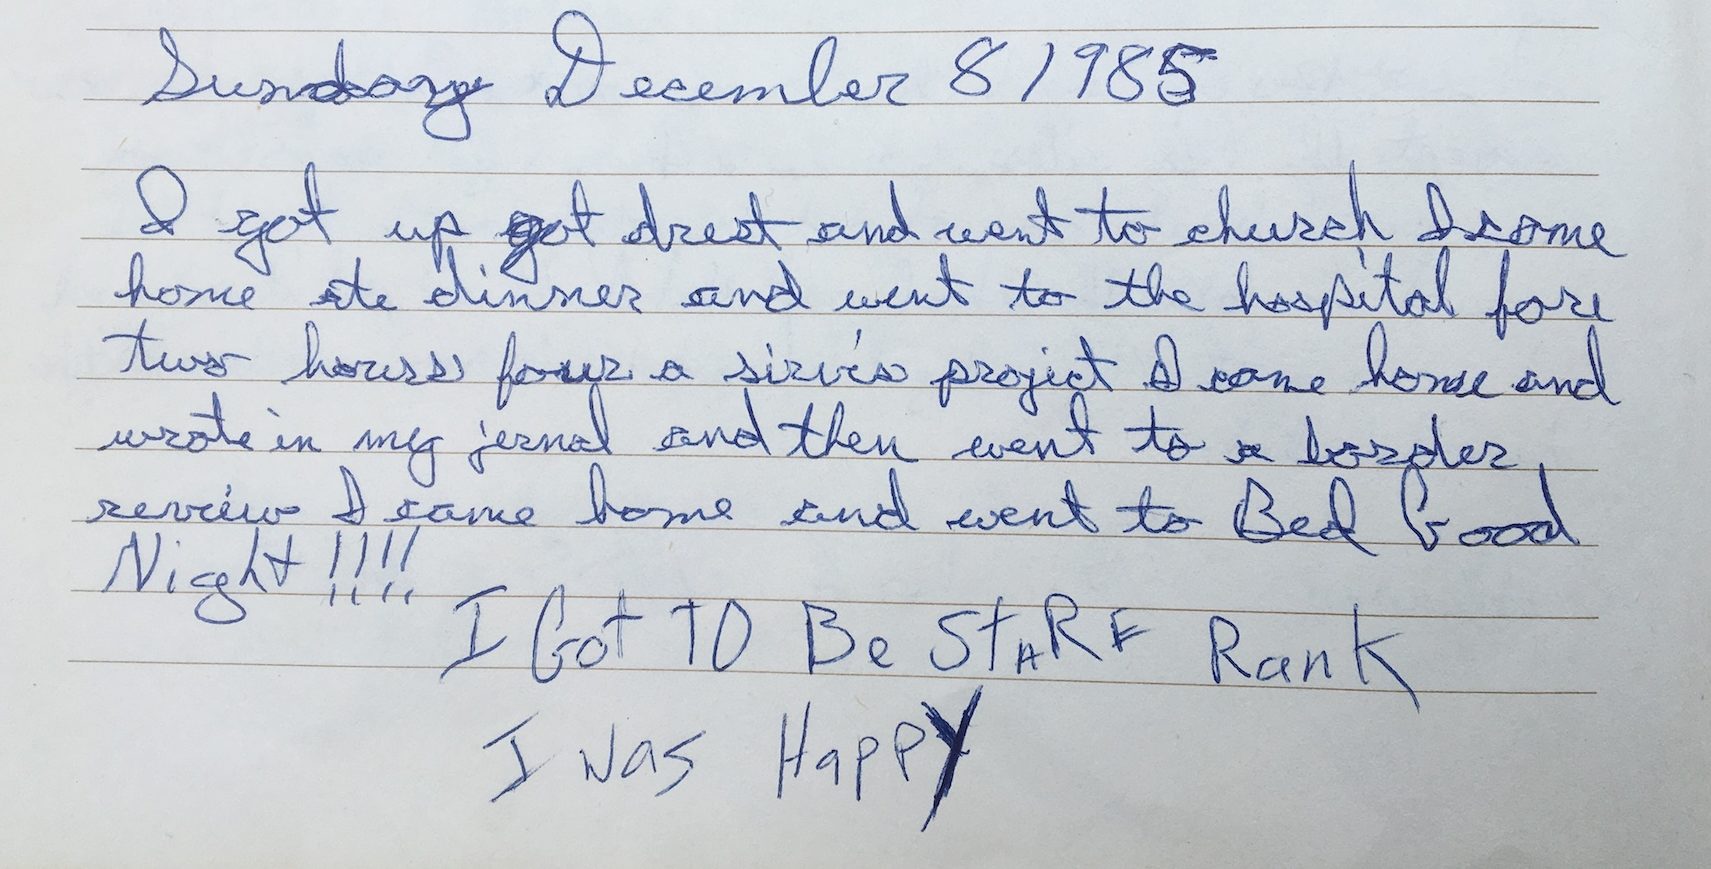 Sunday December 8 1985
I got up got drest and went to church I come
home ate dinner and went to the hospital fore
two hourss four a sirvis project I came home and
wrote in my jernal and then went to a border
review I came home and went to Bed Good
Night !!!!
I Got TO Be STARE Rank
I was Happy